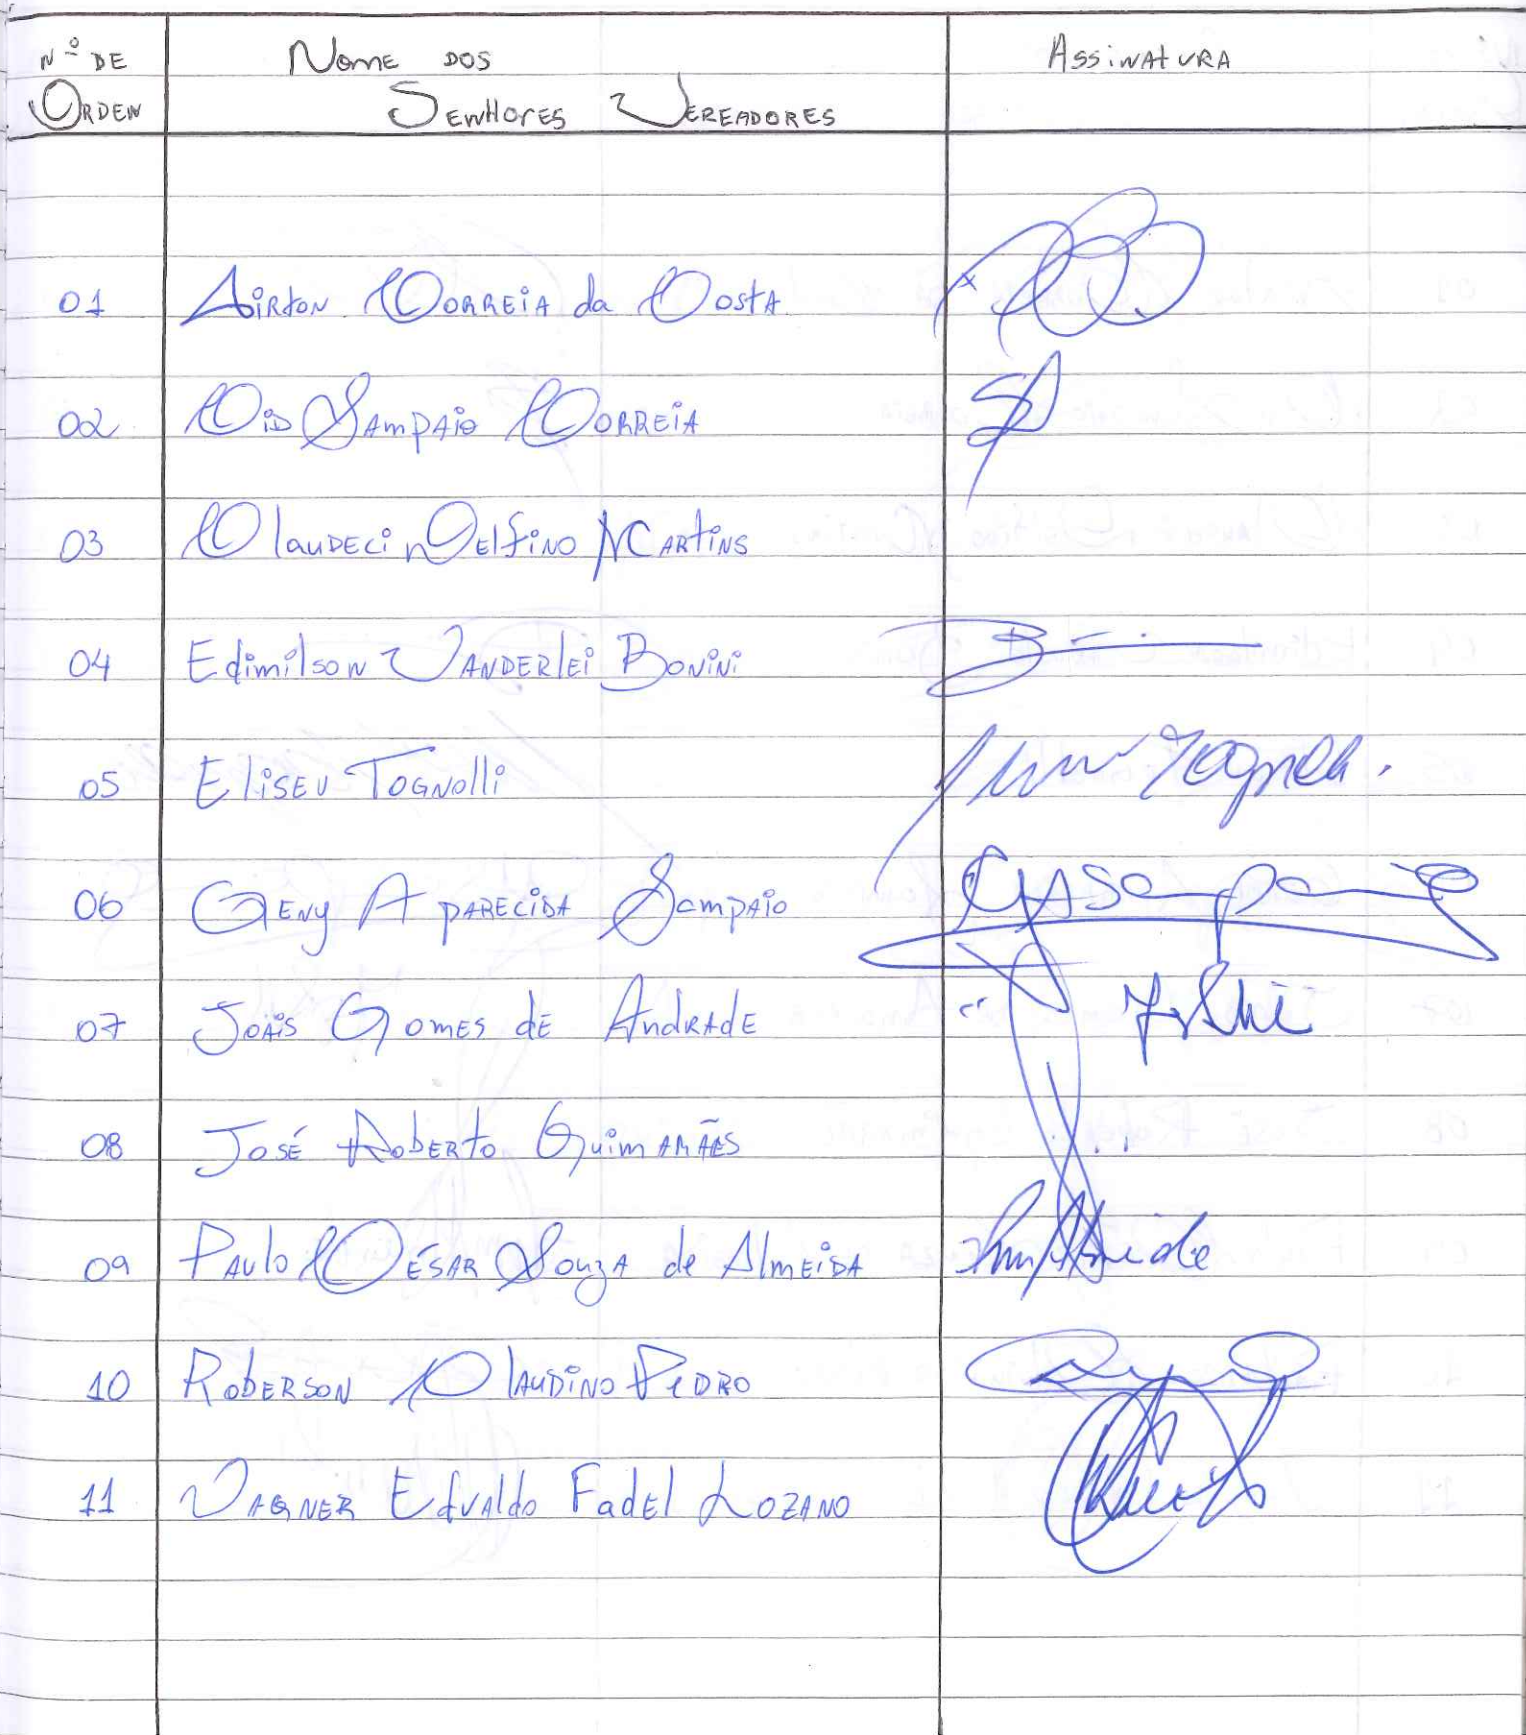 Nº DE
ORDEN
NOME DOS
SENHORES VEREADORES
ASSINATURA
01 AIRTON CORREIA da COSTA
02 CID SAMPAIO CORREIA
03 CLAUDECI DELFINO MARTINS
04 Edimilson VANDERLEI BONINI
05 ELISEU TOGNOLLI
06 GENY APARECIDA SAMPAIO
07 JOÃIS GOMES dE ANDRADE
08 JOSÉ ROBERTO GUIMARÃES
09 PAULO CÉSAR SOUZA de ALMEIDA
10 ROBERSON CLAUDINO PEDRO
11 VAGNER Edvaldo Fadel LOZANO